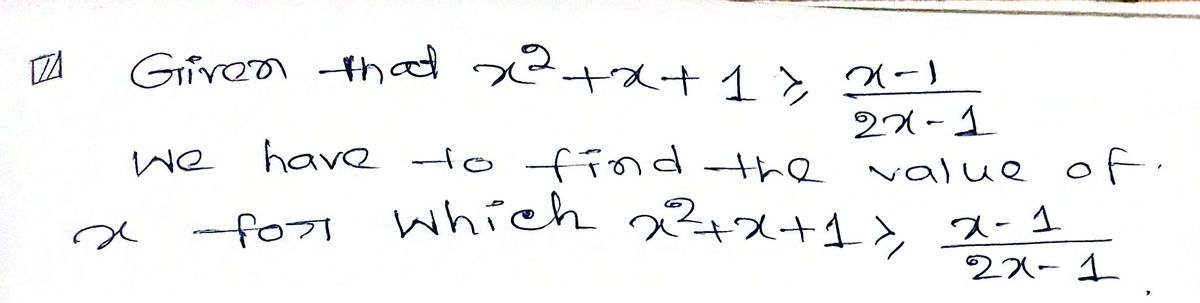 Given that x²+x+1 ≥ \frac{x-1}{2x-1}
We have to find the value of
x for which x²+x+1 ≥ \frac{x-1}{2x-1}.